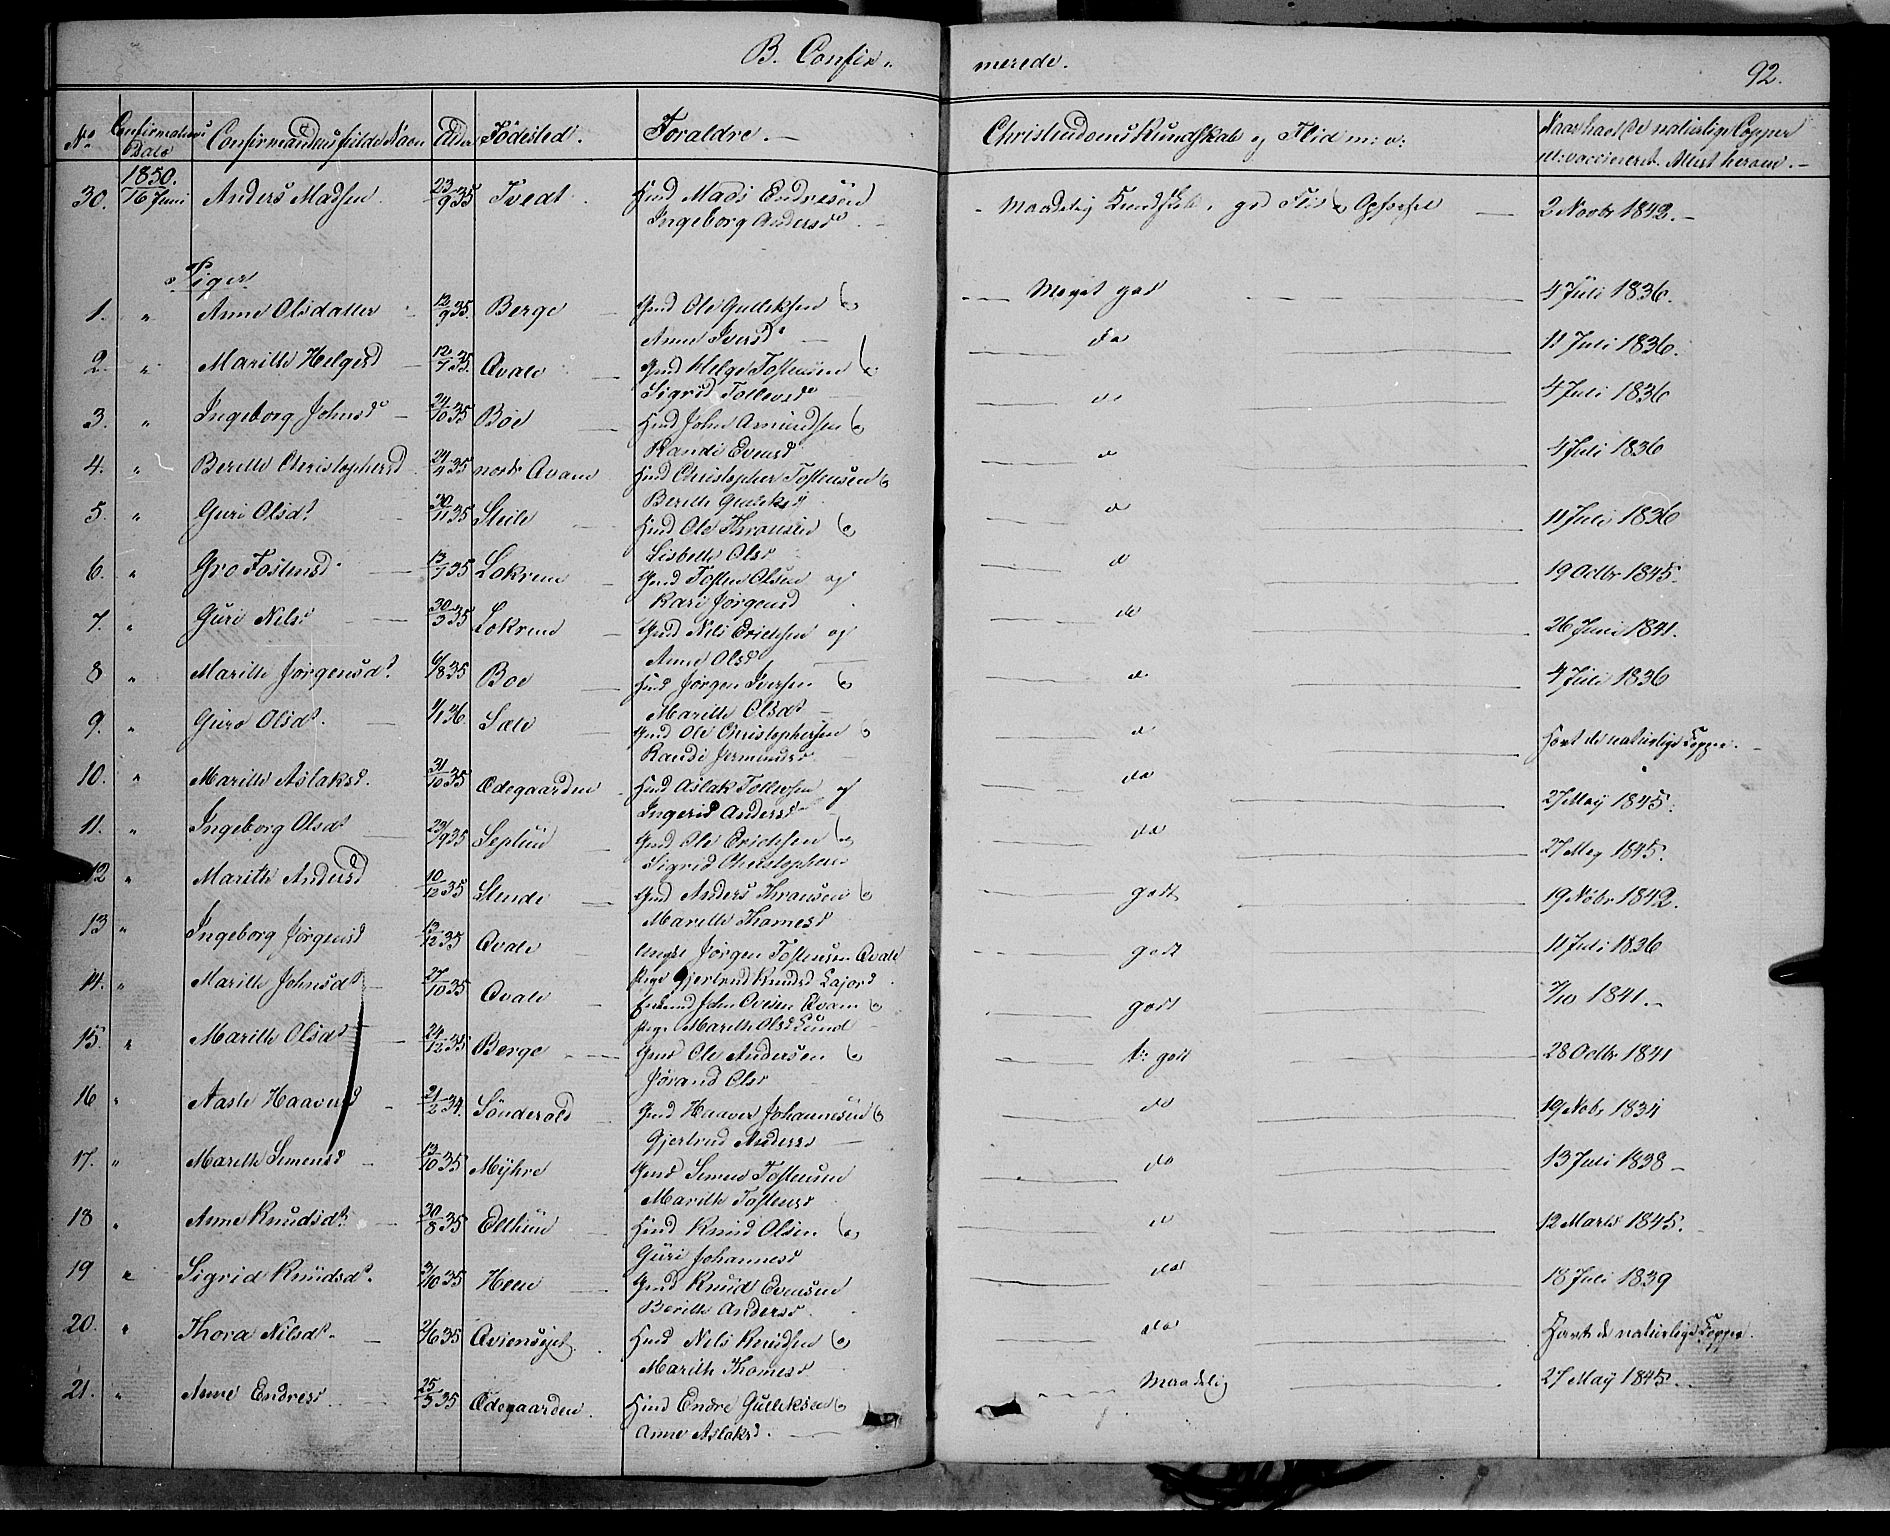 B. Confir-
merede.
92.
No Confirmations Dato Confirmandens fulde Navn Alder Fødested. Forældre. Christendoms Kundskab og Flid m: v: Naar havt de naturlige Copper el: vaccineret. Attest herom.
1850.
30. 16 Juni Anders Madsen 23/9 35 Tvedt Hmd Mads Endresen Maadelig Kundskab, god Flid & Opførsel 2 Novbr 1842.
Ingeborg Andersd
Piger
1. " Anne Olsdatter 12/9 35. Berge Gmd Ole Gulleksen & Meget god 4 Juli 1836.
Anne Iversd
2. " Marithe Helgesd 12/7 35. Qvale Gmd Helge Tostensen & do 11 Juli 1836.
Sigrid Tollevsd
3. " Ingeborg Johnsd 24/10 35 Boe Hmd John Amundsen & do 4 Juli 1836
Randi Evensd
4. " Berithe Christophersd 24/4 35 nordr Qvam Hmd Christopher Tostensen & d 4 Juli 1836
Berithe Gulleksd
5. " Guri Olsd 30/11 35 Steile Hmd Ole Thronsen & d 11 Juli 1836
Lisbethe Olsd
6. " Gro Tostensd 13/7 35 Lokrem Gmd Tosten Olsen og d 19 Octbr 1845.
Kari Jørgensd
7. " Guri Nilsd 30/3 35 Lokrem Gmd Nils Erichsen og do 26 Juni 1841.
Anne Olsd
8 " Marithe Jørgensd 6/8 35 Boe Hmd Jørgen Iversen & d 4 Juli 1836
Marithe Olsd
9. " Guro Olsd 1/1 36 Sæle Gmd Ole Christophersen & d Havt de naturlige Copper.
Randi Jermundsd
10. " Marithe Aslaksd. 31/10 35 Ødegaarden Hmd Aslak Tollevsen og do 27 May 1845.
Ingerid Andersd
11. " Ingeborg Olsd 23/9 35 Seplün Gmd Ole Erichsen & do 27 May 1845.
Sigrid Christophersd
12 " Marith Andersd 10/12 35 Stende Gmd Anders Thronsen & godt 19 Nobr 1842.
Marithe Thomesd
13 " Ingeborg Jørgensd 13/12 35 Qvale Ungk Jørgen Tostensen Qvale godt 11 Juli 1836
Pige Gjertrud Knudsd Lajord
14. " Marith Johnsd 27/10 35 Qvale Enkemd John Ovesen Qvam & godt 2/10 1841.
Pige Marith Olsd Lund
15. " Marithe Olsd 24/12 35 Berge Gmd Ole Andersen & t: godt 28 Octbr 1841
Jørand Olsd
16 " Aaste Haaversd 21/2 34. Sönderold Gmd Haaver Johannesen & do 19 Nobr 1834
Gjertrud Andersd
17. " Marith Simensd 13/10 35 Myhre Gmd Simen Tostensen do 13 Juli 1838
Marithe Tostensd
18 " Anne Knudsd 30/8 35 Ellün Hmd Knud Olsen & d 12 Marts 1845.
Guri Johannesd
19 " Sigrid Knudsd. 3/10 35 Heen Gmd Knud Evensen do 18 Juli 1839
Berithe Andersd
20. " Thora Nilsd 2/6 35 Hmd Nils Knudsen & do Havt de naturlige Copper.
Marithe Thomesd
21. " Anne Endresd 25/5 35 Ødegaarden. Hmd Endre Gulleksen & Maadelig 27 May 1845
Anne Aslaksd.